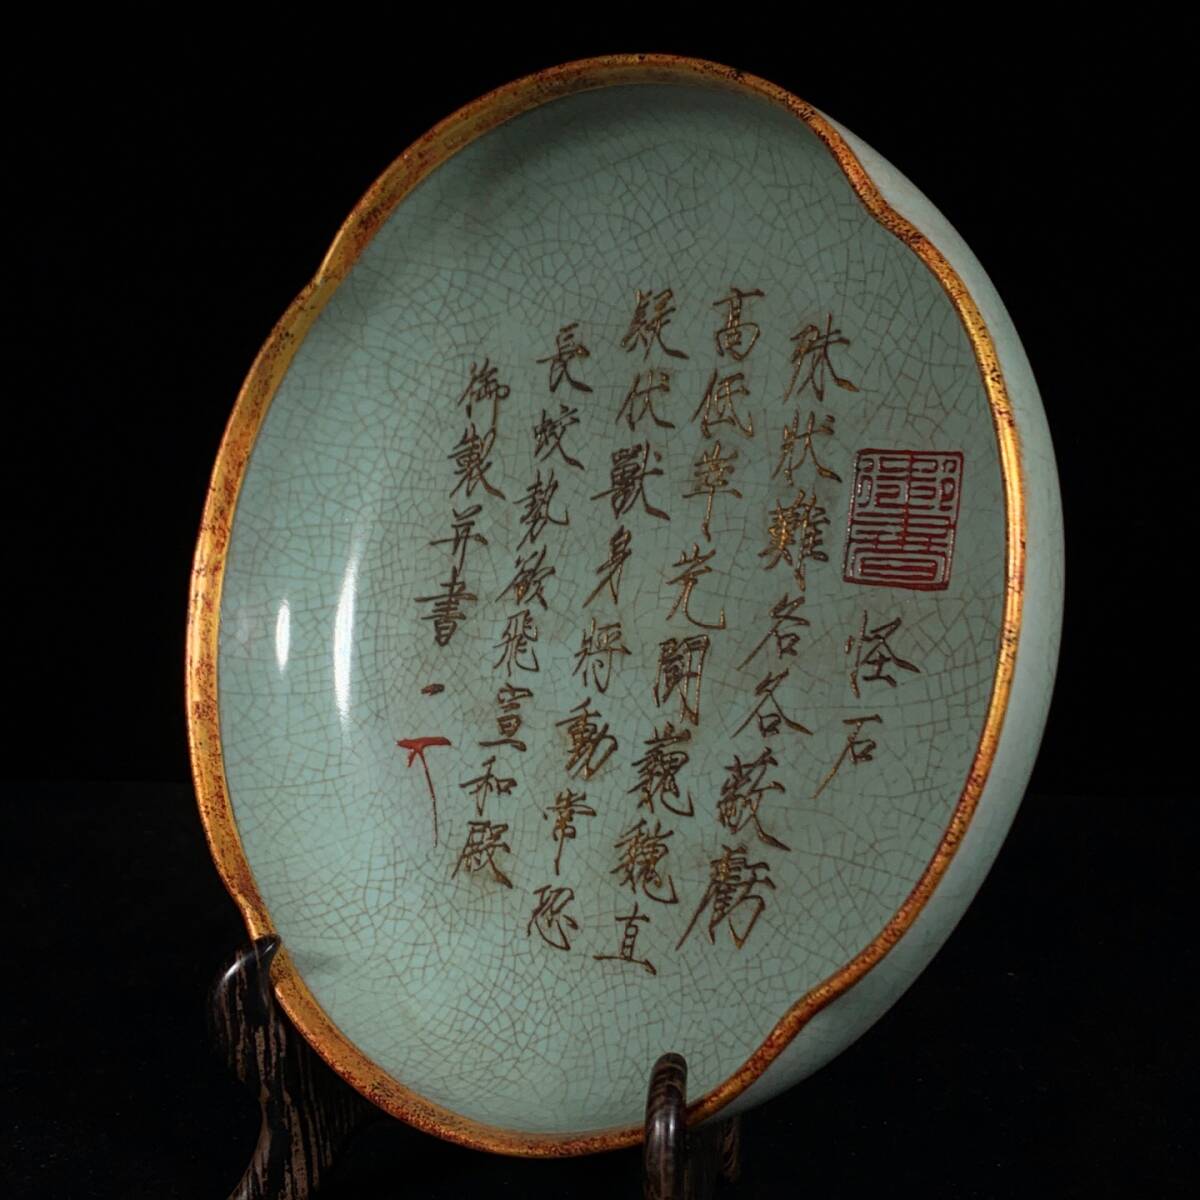 御書
怪石
殊狀難名各蔽虧
高低峯〻巟閗巍巍直
疑伏獸身將動常恐
長蛟勢欲飛宣和殿
御製并書